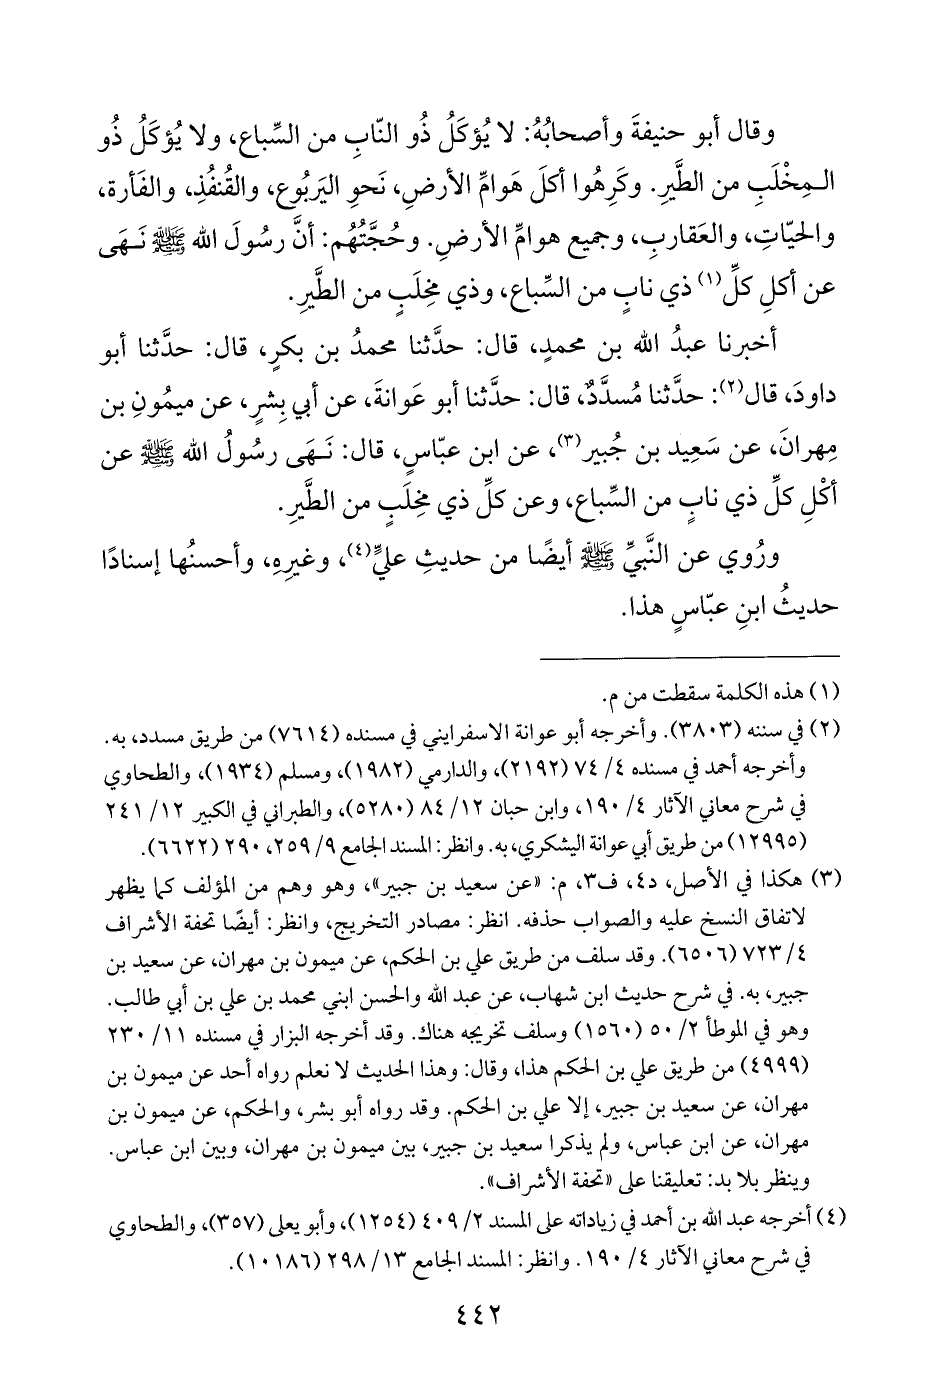 وقال أبو حنيفةَ وأصحابُهُ: لا يُؤكَلُ ذُو النّابِ من السِّباع، ولا يُؤكَلُ ذُو
الـمِخْلَبِ من الطَّيرِ. وكَرِهُوا أكلَ هَوامِّ الأرضِ، نَحوِ اليَربُوع، والقُنفُذِ، والفَأرة،
والحيّاتِ، والعَقاربِ، وجميع هوامِّ الأرضِ. وحُجَّتُهُم: أنَّ رسُولَ الله ﷺ نَـهَى
عن أكلِ كلِّ(١) ذي نابٍ من السِّباع، وذي مِخلَبٍ من الطَّيرِ.
أخبرنا عبدُ الله بن محمدٍ، قال: حدَّثنا محمدُ بن بكرٍ، قال: حدَّثنا أبو
داودَ، قال(٢): حدَّثنا مُسدَّدٌ، قال: حدَّثنا أبو عَوانةَ، عن أبي بِشرٍ، عن ميمُونِ بن
مِهرانَ، عن سَعِيد بن جُبير(٣)، عن ابن عبّاسٍ، قال: نَـهَى رسُولُ الله ﷺ عن
أكْلِ كلِّ ذي نابٍ من السِّباع، وعن كلِّ ذي مِخلَبٍ من الطَّيرِ.
ورُوي عن النَّبيِّ ﷺ أيضًا من حديثِ عليٍّ(٤)، وغيرِهِ، وأحسنُها إسنادًا
حديثُ ابنِ عبّاسٍ هذا.
(١) هذه الكلمة سقطت من م.
(٢) في سننه (٣٨٠٣). وأخرجه أبو عوانة الاسفرايني في مسنده (٧٦١٤) من طريق مسدد، به.
وأخرجه أحمد في مسنده ٤/ ٧٤ (٢١٩٢)، والدارمي (١٩٨٢)، ومسلم (١٩٣٤)، والطحاوي
في شرح معاني الآثار ٤/ ١٩٠، وابن حبان ١٢/ ٨٤ (٥٢٨٠)، والطبراني في الكبير ١٢/ ٢٤١
(١٢٩٩٥) من طريق أبي عوانة اليشكري، به. وانظر: المسند الجامع ٩/ ٢٥٩، ٢٩٠ (٦٦٢٢).
(٣) هكذا في الأصل، د٤، ف٣، م: «عن سعيد بن جبير»، وهو وهم من المؤلف كما يظهر
لاتفاق النسخ عليه والصواب حذفه. انظر: مصادر التخريج، وانظر: أيضًا تحفة الأشراف
٤/ ٧٢٣ (٦٥٠٦). وقد سلف من طريق علي بن الحكم، عن ميمون بن مهران، عن سعيد بن
جبير، به. في شرح حديث ابن شهاب، عن عبد الله والحسن ابني محمد بن علي بن أبي طالب.
وهو في الموطأ ٢/ ٥٠ (١٥٦٠) وسلف تخريجه هناك. وقد أخرجه البزار في مسنده ١١/ ٢٣٠
(٤٩٩٩) من طريق علي بن الحكم هذا، وقال: وهذا الحديث لا نعلم رواه أحد عن ميمون بن
مهران، عن سعيد بن جبير، إلا علي بن الحكم. وقد رواه أبو بشر، والحكم، عن ميمون بن
مهران، عن ابن عباس، ولم يذكرا سعيد بن جبير، بين ميمون بن مهران، وبين ابن عباس.
وينظر بلا بد: تعليقنا على «تحفة الأشراف».
(٤) أخرجه عبد الله بن أحمد في زياداته على المسند ٢/ ٤٠٩ (١٢٥٤)، وأبو يعلى (٣٥٧)، والطحاوي
في شرح معاني الآثار ٤/ ١٩٠. وانظر: المسند الجامع ١٣/ ٢٩٨ (١٠١٨٦).
٤٤٢